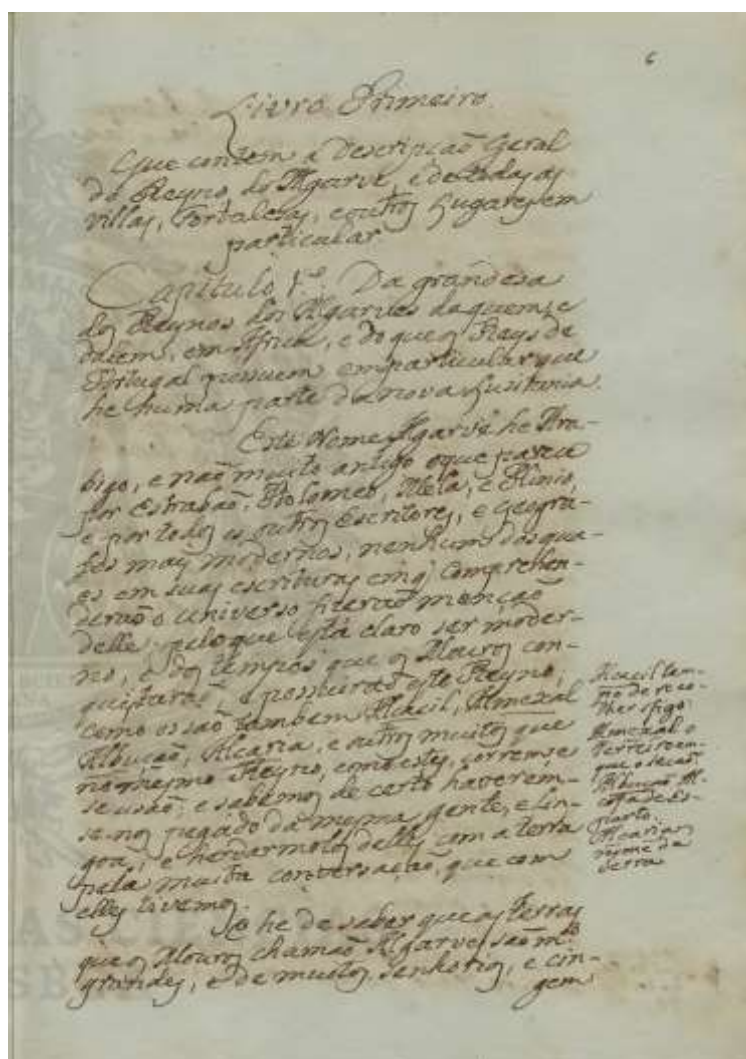 6
Livro Primeiro.
Que contem a Descripçaõ Geral
do Reyno do Algarve, e de todas as
villas, Fortalesas, e outros Lugares em
particular
Capitulo 1.º Da grandesa
dos Reynos dos Algarves daquem, e
dalem, em Africa, e do que os Reys de
Portugal possuem em particular que
he huma parte da nova Lusitania.
Este Nome Algarve he Ara-
bigo, e naõ muito antigo o que parece
por Estrabaõ, Ptolomeo, Mela, e Plinio,
e por todos os outros Escritores, e Geogra-
fos mais modernos; nenhum dos qua-
es em suas escrituras em q̃ comprehen-
deraõ o universo fizeraõ mençaõ
delle; pelo que está claro ser moder-
no, e dos tempos que os Mouros con-
quistaraõ, e possuiraõ este Reyno,
como os saõ tambem Alacil, Almexal
Albuçaõ, Alcaria, e outros muitos que
no mesmo Reyno, como estes, correm, e
se usaõ; e sabemos de certo haverem-
se-nos pegado da mesma gente, e Lin-
goa, e herdarmolos delles com a terra
pela muita conversaçaõ, que com
elles tivemos.
E he de saber que as terras
que os Mouros chamaõ Algarve, saõ m.to
grandes, e de muitos senhorios, e cin-
gem
Alacil tem-
po de reco-
lher figo
Almexal o
Terreiro em
que o secaõ
Albuçaõ Al-
cofa de Es-
parto.
Alcarias
nome da
Serra